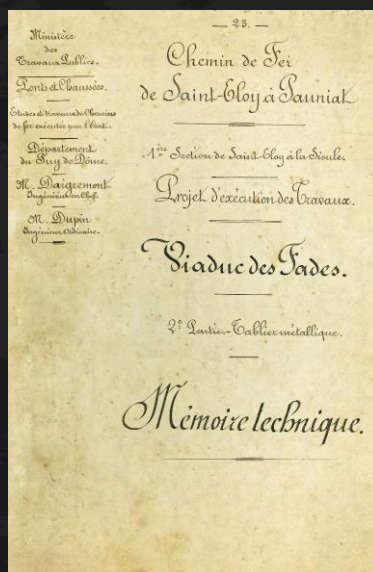 — 23. —
Ministère
des
Travaux Publics.
Ponts et Chaussées.
Études et Travaux de Chemins
de fer exécutés par l'État.
Département
du Puy de Dôme.
M. Daigremont
Ingénieur en Chef.
M. Dupin
Ingénieur Ordinaire.
Chemin de Fer
de Saint-Eloy à Pauniat
1ère Section de Saint-Eloy à la Sioule.
Projet d'exécution des Travaux.
Viaduc des Fades.
2e Partie.-Tablier métallique.
Mémoire technique.